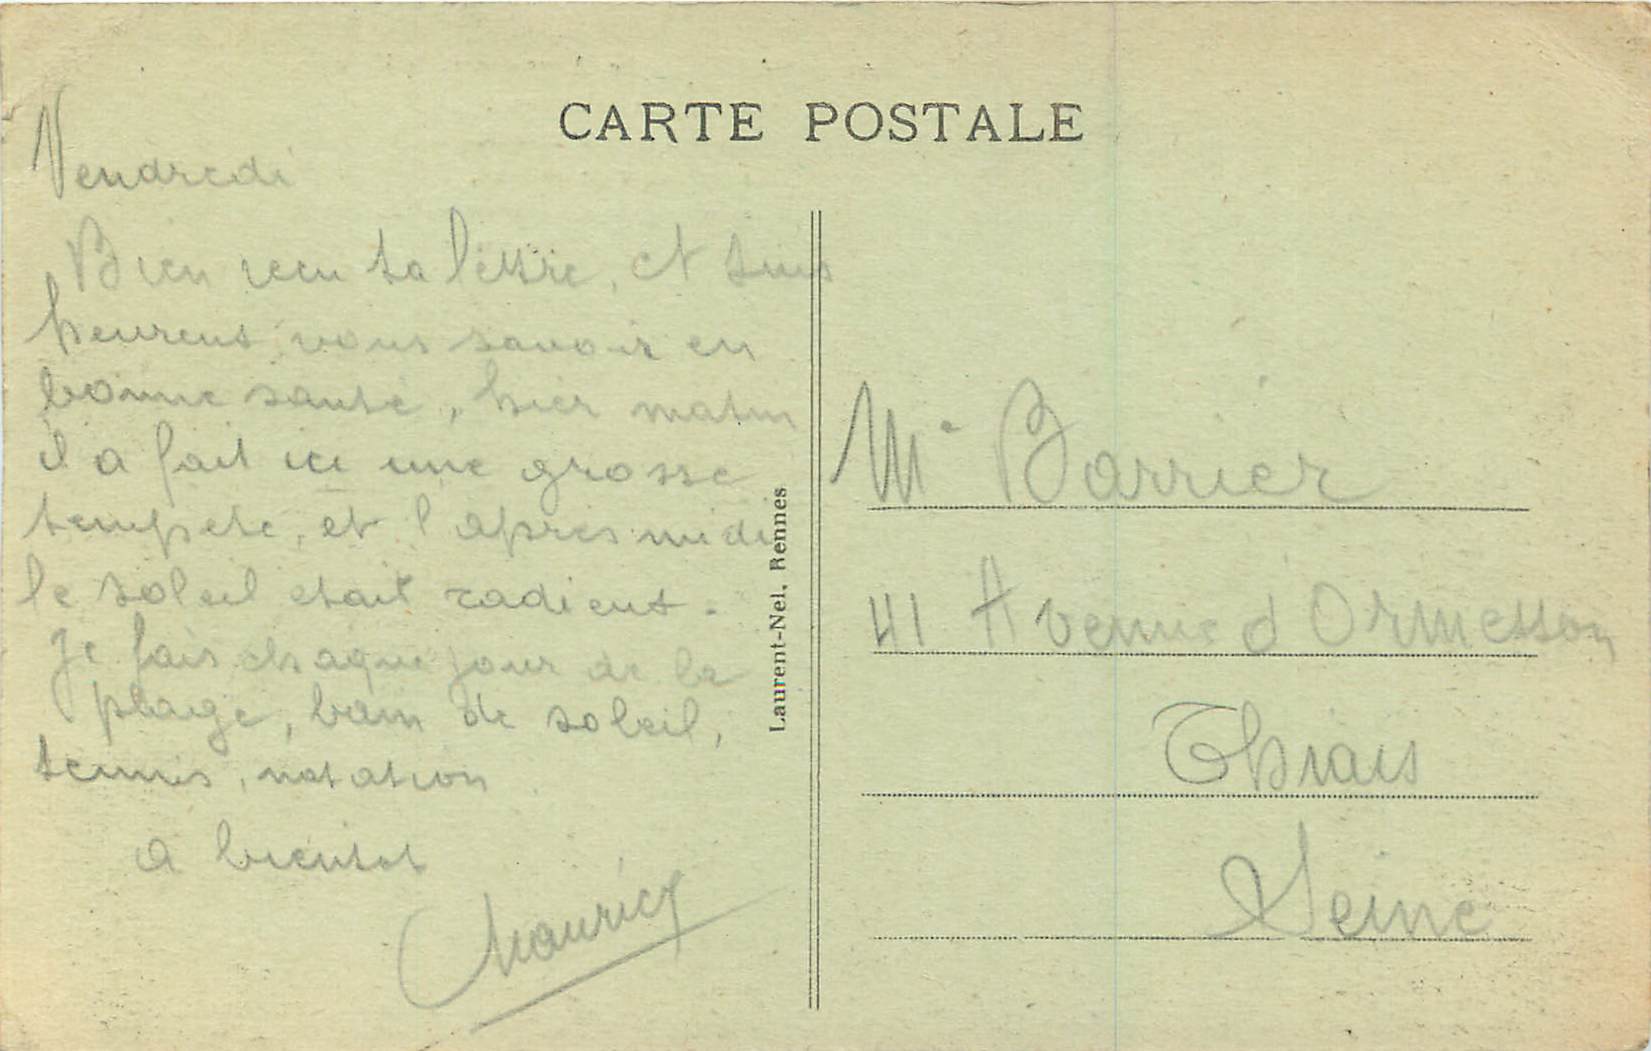 CARTE POSTALE
Vendredi
Bien recu ta lettre, et suis
heureus vous savoir en
bonne santé, hier matin
il a fait ici une grosse
tempete, et l'apres midi
le soleil etait radieus.
Je fais chaque jour de la
plage, bain de soleil,
tennis, natation
a bientot
Maurice
Laurent-Nel, Rennes
Me Barrier
41 Avenue d'Ormesson
Thiais
Seine